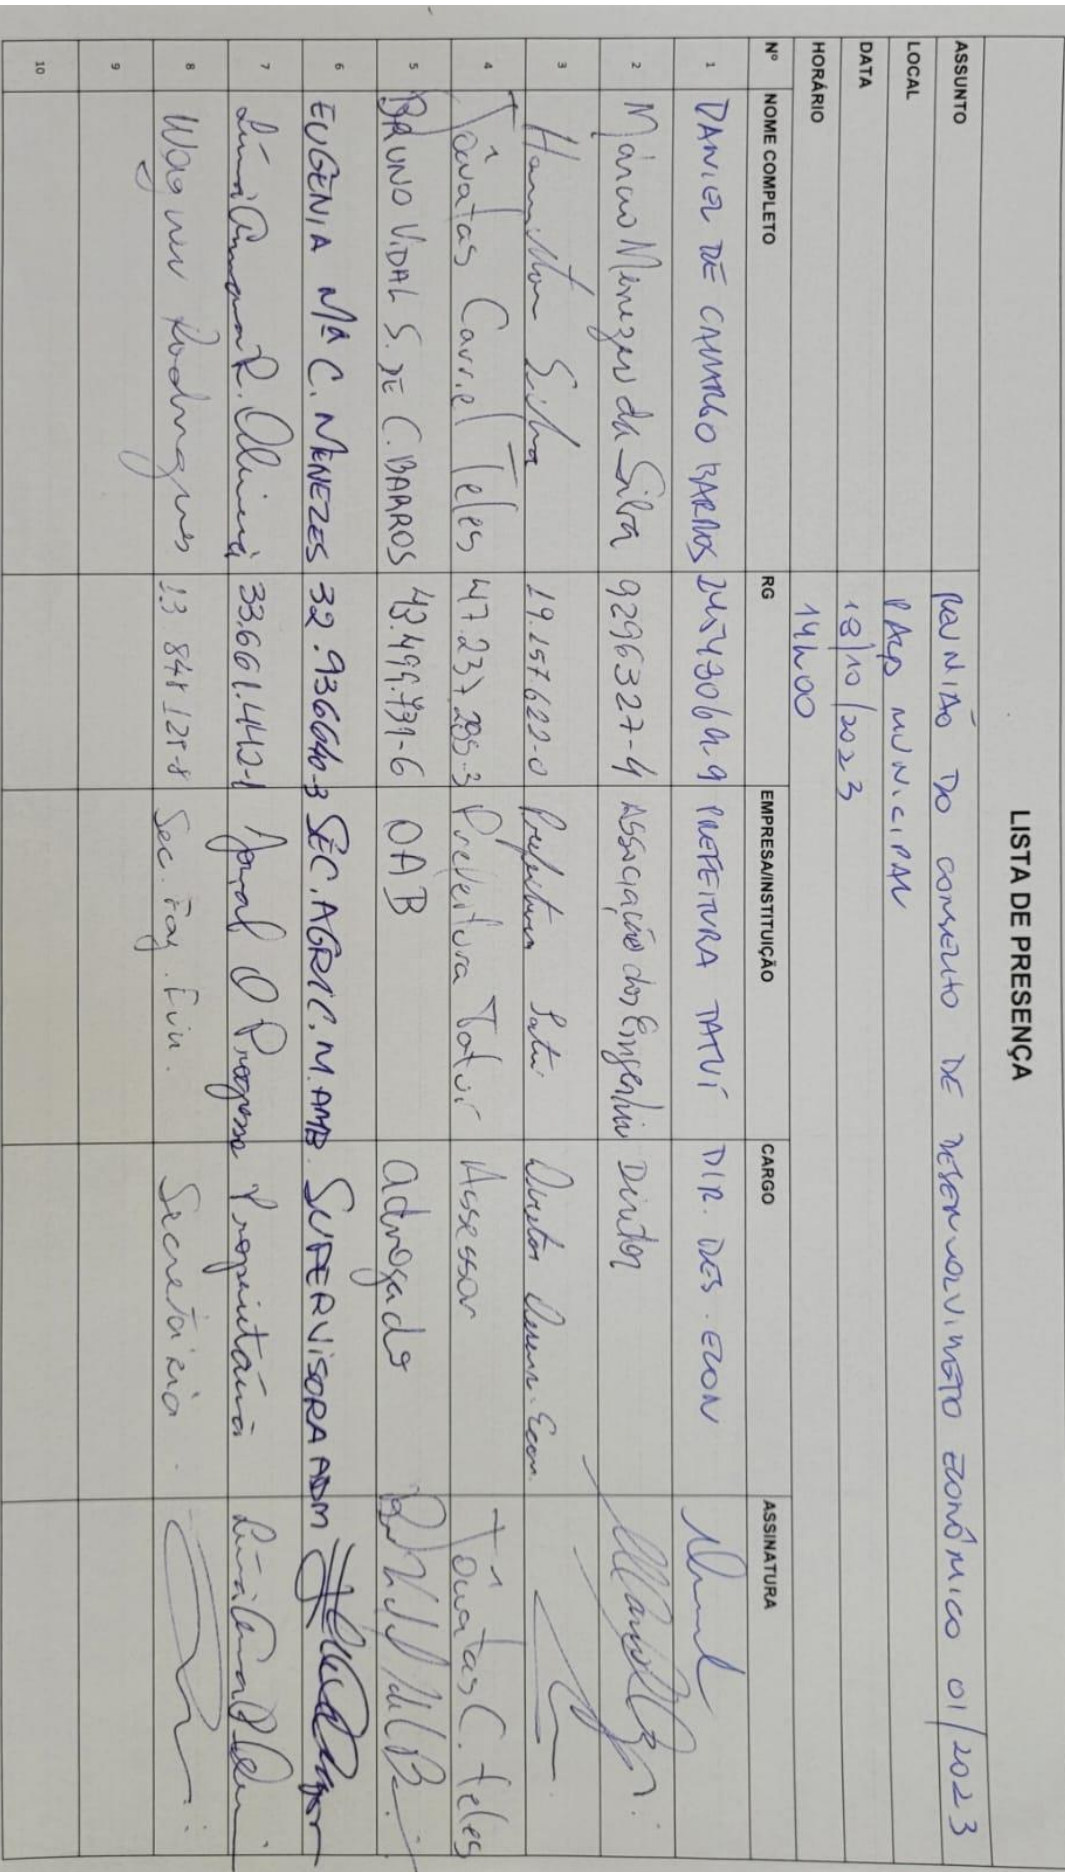 LISTA DE PRESENÇA
ASSUNTO REUNIÃO DO CONSELHO DE DESENVOLVIMETO ECONÔMICO 01/2023
LOCAL PAÇO MUNICIPAL
DATA 18/10/2023
HORÁRIO 14h00
Nº NOME COMPLETO RG EMPRESA/INSTITUIÇÃO CARGO ASSINATURA
1 DANIEL DE CAMARGO BARROS PREFEITURA TATUÍ DIR. DES. ECON
2 Márcio Menezes da Silva 9296327-4 Associação dos Engenhei Diretor
3 Hamilton Silva 19.157622-0 Prefeitura Tatuí Diretor Desenv. Econ.
4 Tônatas Carriel Teles 47.237.295-3 Prefeitura Tatuí Assessor Tônatas C. Teles
5 BRUNO VIDAL S. DE C. BARROS 43.499.731-6 OAB advogado
6 EUGÊNIA Mª C. MENEZES 32.936640-3 SEC. AGRIC. M. AMB. SUPERVISORA ADM
7 R. 33.661.442-1 Jornal O Progresso Proprietária
8 Wagner Rodrigues 13 848 128-8 Sec. Faz. Fin. Secretário
9
10